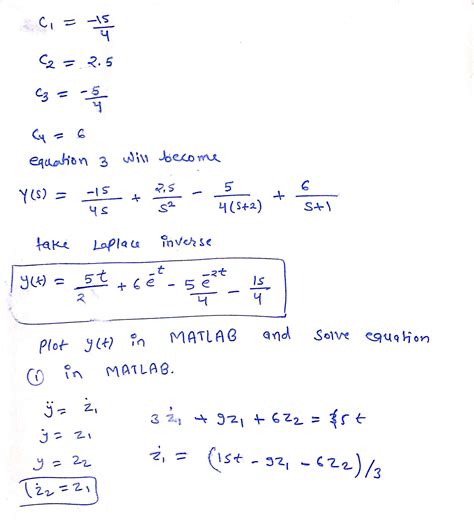 C₁ = -15/4
C₂ = 2.5
C₃ = -5/4
C₄ = 6
equation 3 will become
Y(s) = -15/4s + 2.5/s² - 5/4(s+2) + 6/s+1
take Laplace inverse
y(t) = 5t/2 + 6e^-t - 5e^-2t/4 - 15/4
Plot y(t) in MATLAB and solve equation
① in MATLAB.
ÿ = ż₁
ẏ = z₁
y = z₂
ż₂ = z₁
3ż₁ + 9z₁ + 6z₂ = 15t
ż₁ = (15t - 9z₁ - 6z₂)/3